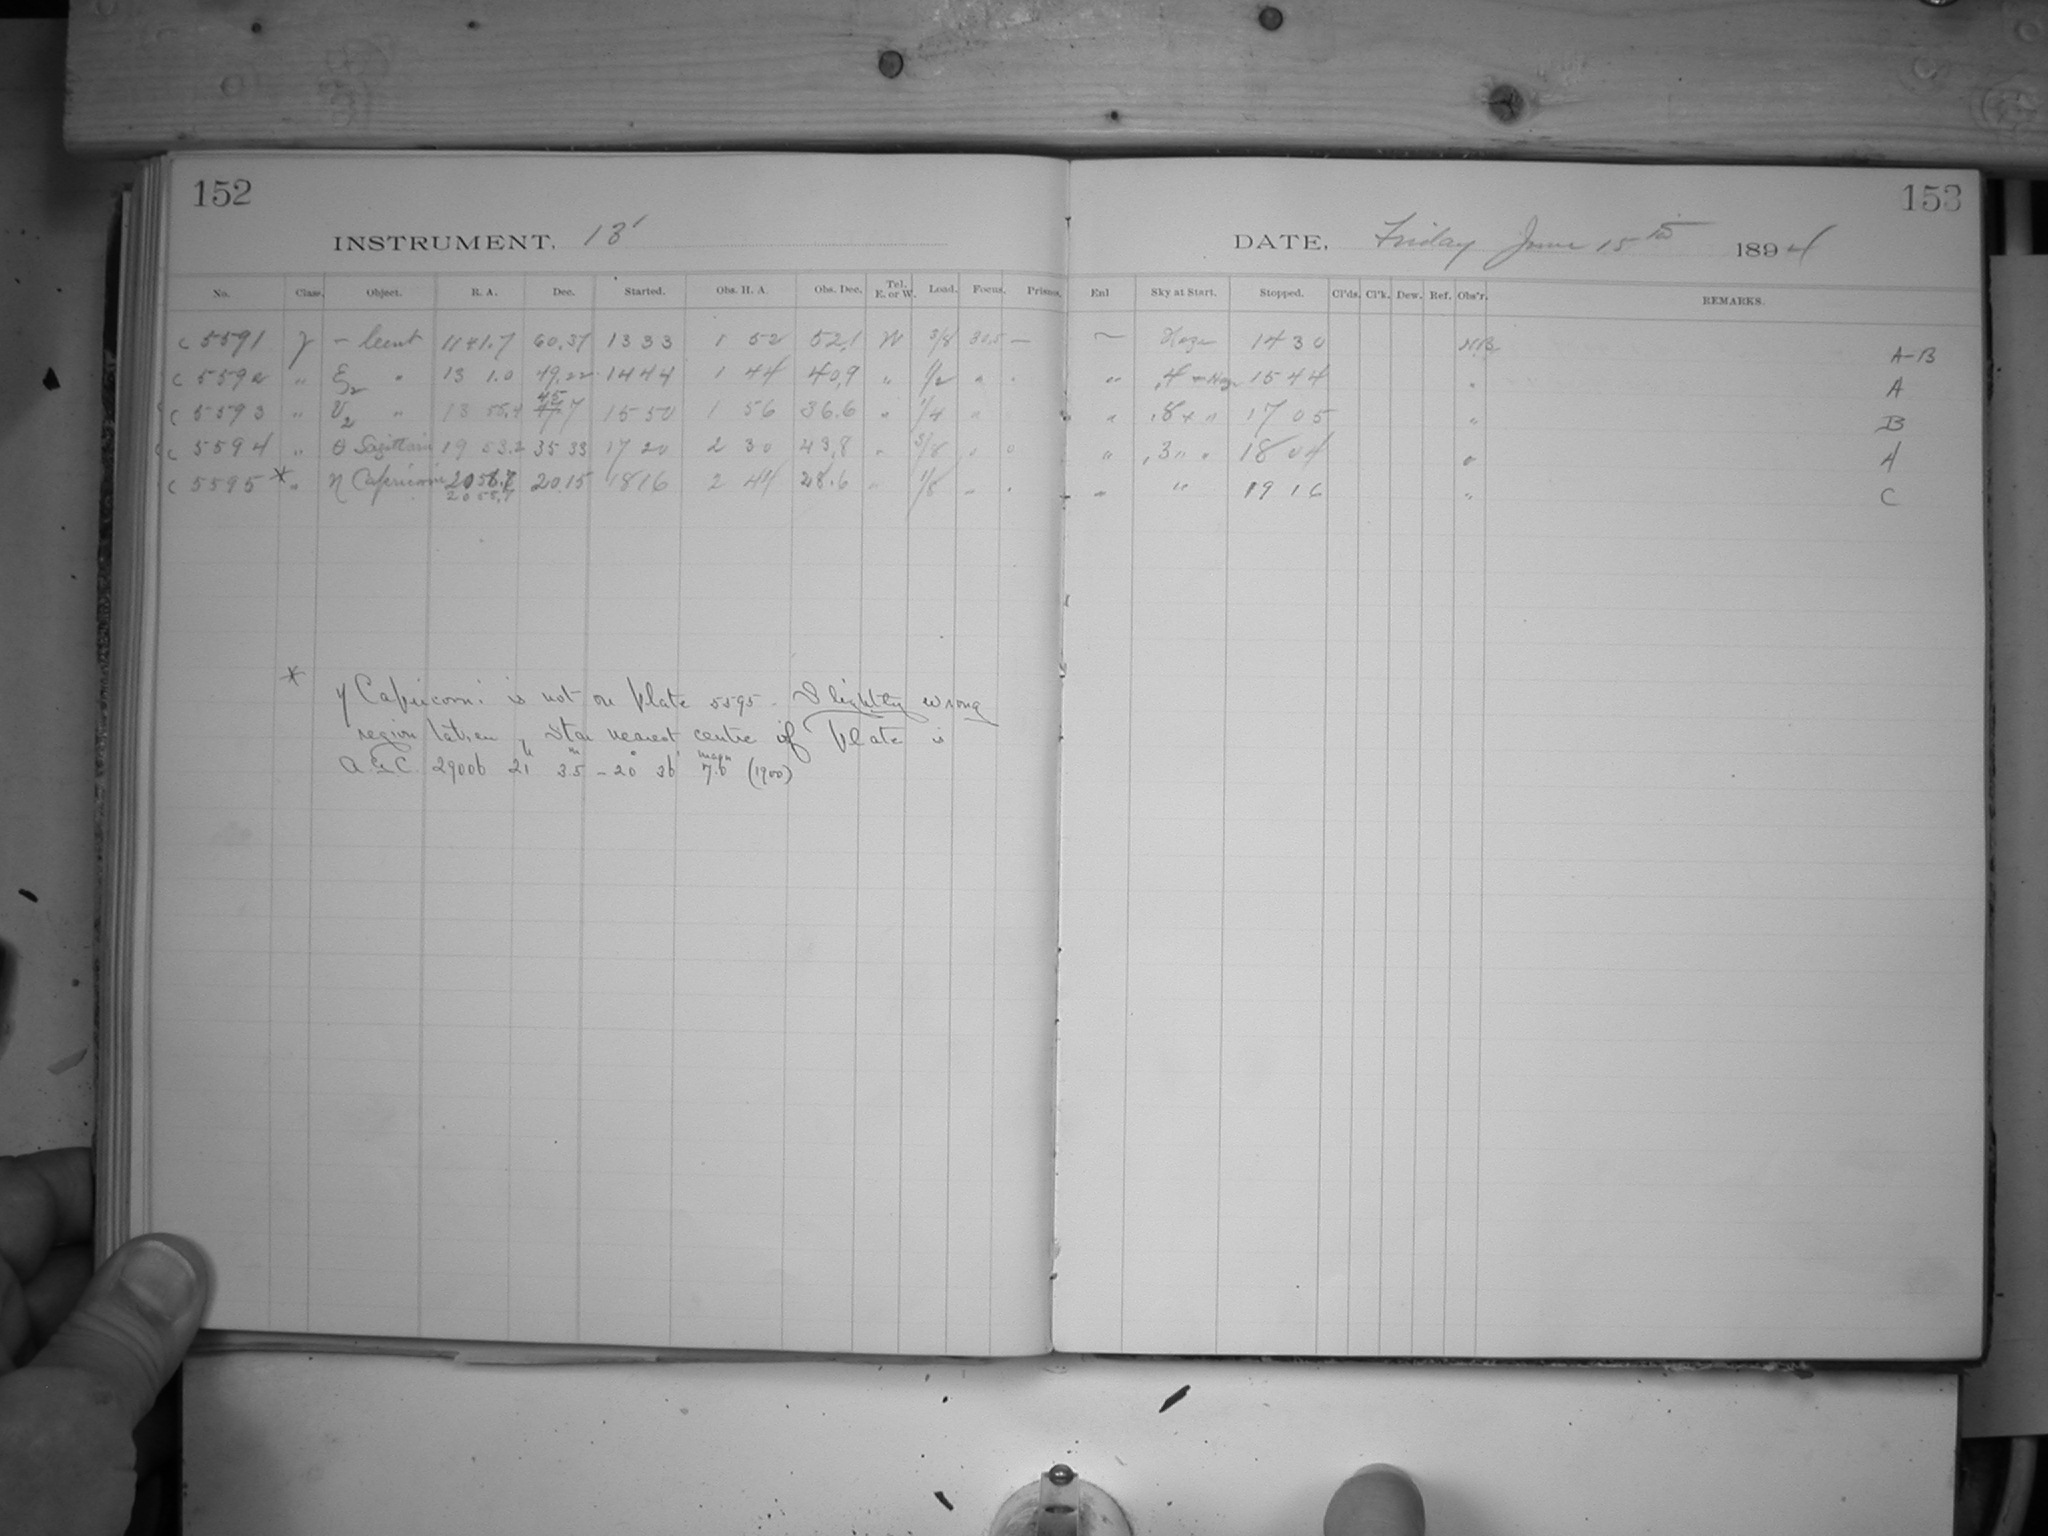 152
153
INSTRUMENT, 13'
DATE, Friday June 15th 1894
No. Class. Object. R. A. Dec. Started. Obs. H. A. Obs. Dec. Tel. E. or W. Load. Focus. Prisms. Enl Sky at Start. Stopped. Cl'ds. Cl'k. Dew. Ref. Obs'r. REMARKS.
c 5591 — Cent 11 41.7 60.37 13 33 1 52 52.1 W 3/8 30.5 — — Haze 14 30 A-B
c 5592 " ξ2 " 13 1.0 49.22 14 44 1 44 40.9 " 1/2 " " " .4 + Haze 15 44 " A
45
c 5593 " υ2 " 13 55.4 47.7 15 50 1 56 36.6 " 1/4 " " .8 + " 17 05 " B
c 5594 " θ Sagittarii 19 53.2 35 33 17 20 2 30 43.8 " 3/8 " " " .3 " " 18 04 " A
c 5595 * " η Capricorni 20 58.7 20.15 18 16 2 44 28.6 " 1/8 " " " " 19 16 " C
20 58.7
* η Capricorni is not on plate 5595 - Slightly wrong
region taken, Star nearest centre of plate is
A.G.C. 29006 21h 3m.5 - 20° 36' magn 7.6 (1900)